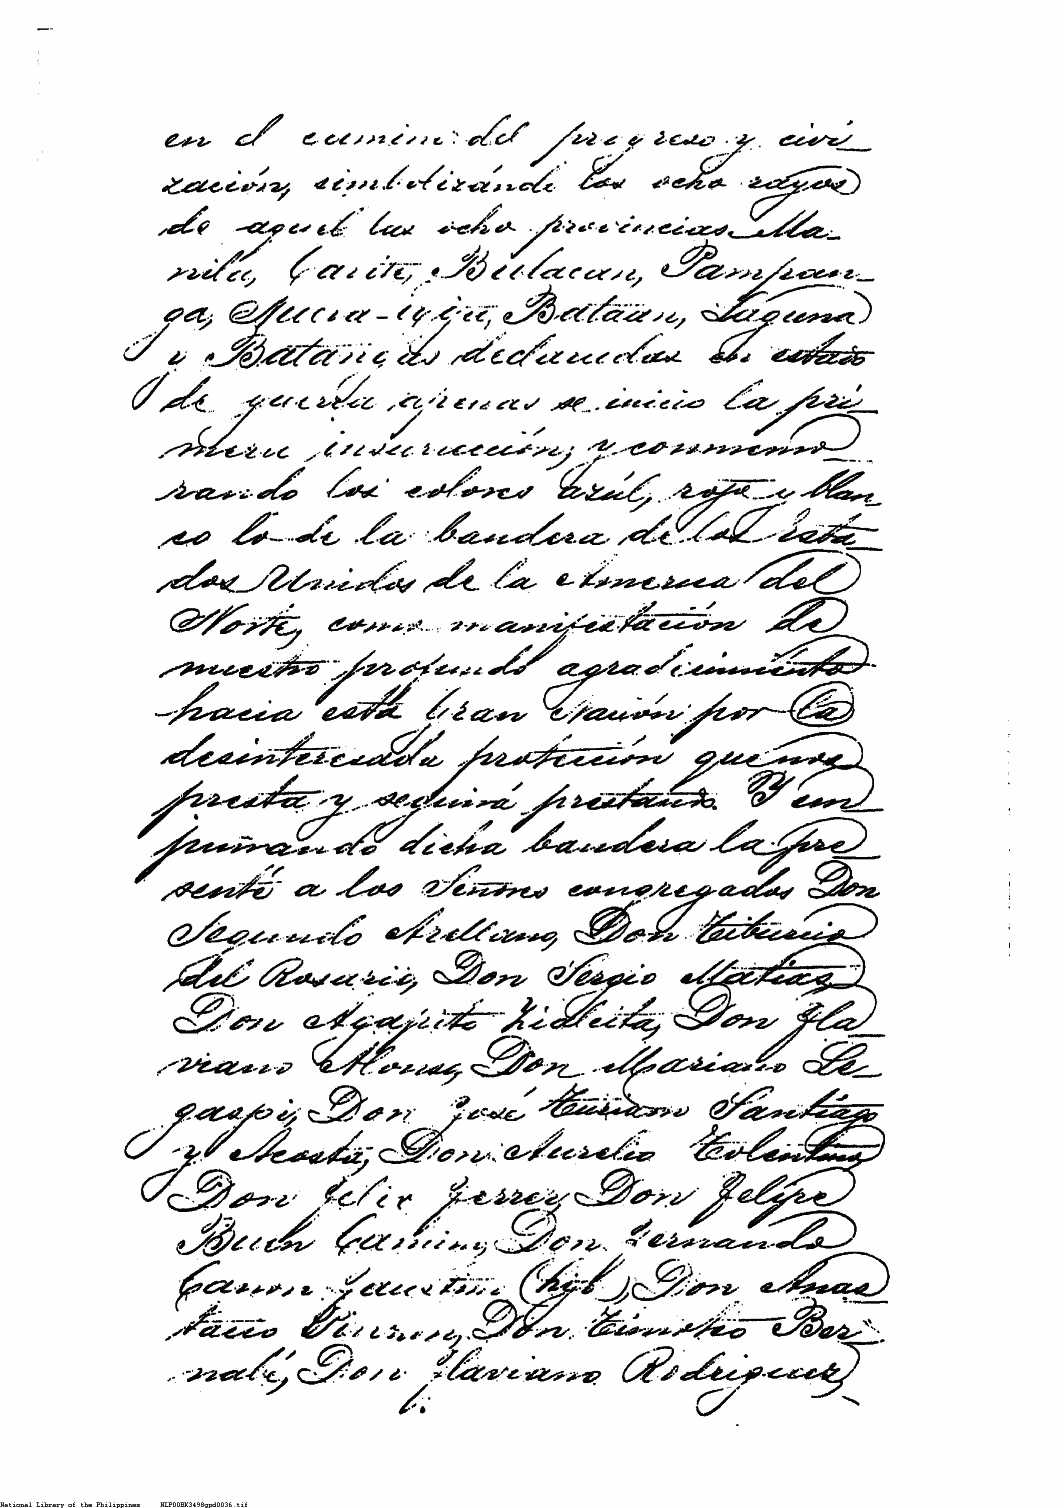 en el camino del progreso y civi
zación, simbolizándo los ocho rayos
de aquel las ocho provincias Ma-
nila, Cavite, Bulacan, Pampan-
ga, Nueva-ecija, Bataan, Laguna
y Batangas declaradas en estado
de guerra apenas se inició la pri
mera insurrección; y conmemo
rando los colores azúl, rojo y blan
co lo de la bandera de los Esta
dos Unidos de la America del
Norte, como manifestación de
nuestro profundo agradicimiento
hacia esta Gran Nación por la
desinteresada protección que nos
presta y seguirá prestando. Y em
puñando dicha bandera la pre
senté a los Señores congregados Don
Segundo Arellano, Don Tiburcio
del Rosario, Don Sergio Matias,
Don Agapito Zialcita, Don Fla
viano Alonso, Don Mariano Le-
gaspi, Don José Turiano Santiago
y Acosta, Don Aurelio Tolentino,
Don Felix Ferrer, Don Felipe
Buen Camino, Don Fernando
Canon Faustino (hijo), Don Anas
tacio Pinzon, Don Timoteo Ber
nabé, Don Flaviano Rodriguez,
National Library of the Philippines NLP00BK3498gpd0036.tif